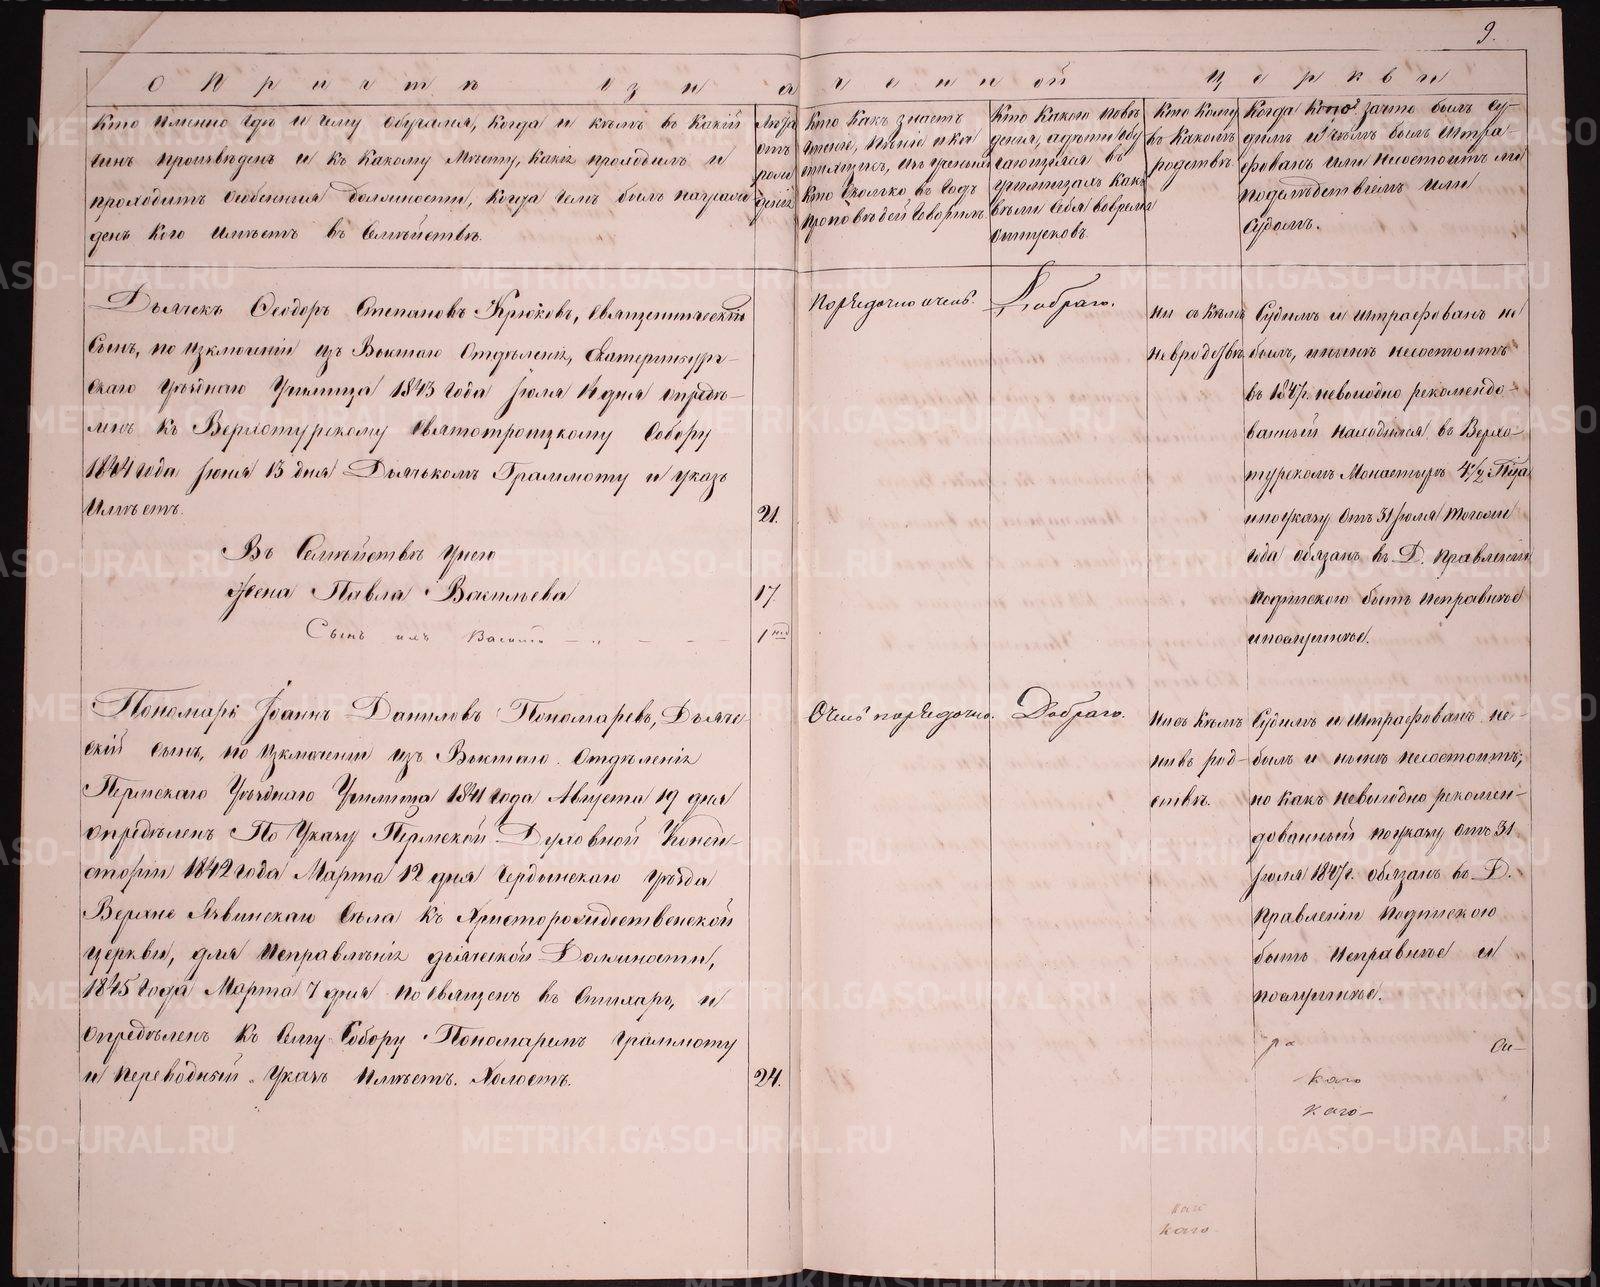 9.
О Причтѣ означенной Церкви
Кто именно гдѣ и чему обучался, когда и кѣмъ въ какой
чинъ произведенъ и къ какому мѣсту, какія проходилъ и
проходитъ особенныя должности, когда чемъ былъ награж-
денъ кого имѣетъ въ семействѣ.
Лѣта
отъ
рож
денія
Кто какъ знаетъ
чтеніе, пѣніе и ка
тихизисъ, изъ ученыхъ
кто сколько въ годъ
проповѣдей говорилъ
Кто какого повѣ
денія, а дѣти обу
чающіяся въ
училищахъ какъ
вели себя во время
отпусковъ
Кто кому
въ какомъ
родствѣ
Когда кто за что былъ су-
димъ и чѣмъ былъ штра-
фованъ или несостоитъ ли
подъ слѣдствіемъ или
судомъ.
Дьячекъ Ѳеодоръ Степановъ Крюковъ, священнический
сынъ, по изключеніи изъ Высшаго Отдѣленія, Екатеринбург-
скаго Уѣзднаго Училища 1843 года Іюля 14 дня опредѣ-
ленъ къ Верхотурскому Святотроицкому Собору
1844 года Іюня 13 дня Дьячькомъ Граммоту и указъ
Имѣетъ.
21.
Въ Семѣйствѣ у него
Жена Павла Васильева
17.
Сынъ ихъ Василій
1 нед
Порядочно очень.
Добраго.
Ни съ кѣмъ
не в родствѣ
Судимъ и штрафованъ не
былъ, и нынѣ несостоитъ
въ 1847г. невыгодно рекомендо-
ванный находился въ Верхо-
турскомъ Монастырѣ 4 1/2 м-ца
и по указу отъ 31 Іюля тогожъ
года обязанъ въ Д. Правленіи
подпискою быть исправнѣе
и послушнѣе.
Пономарь Іоаннъ Даниловъ Пономаревъ, Дьяче-
скій сынъ, по изключеніи изъ Высшаго Отдѣленія
Пермскаго Уѣзднаго Училища 1841 года Августа 19 дня
опредѣленъ По Указу Пермской Духовной Консис-
торіи 1842 года Марта 12 дня Чердынскаго Уѣзда
Верхне Язвинскаго Села къ Христорождественской
церкви, для Исправленія дьяческой Должности,
1845 года Марта 7 дня посвященъ въ Стихарь, и
опредѣленъ къ Сему Собору Пономаремъ Граммоту
и переводный Указъ Имѣетъ. Холостъ.
24.
Очень порядочно.
Добраго.
Ни съ кѣмъ
ни въ род-
ствѣ.
Судимъ и штрафованъ не-
былъ и нынѣ несостоитъ,
но какъ невыгодно рекомен-
дованный по указу отъ 31
Іюля 1847г. обязанъ въ Д.
Правленіи подпискою
быть исправнѣе и
послушнѣе.
каго
каго
каго
METRIKI.GASO-URAL.RU